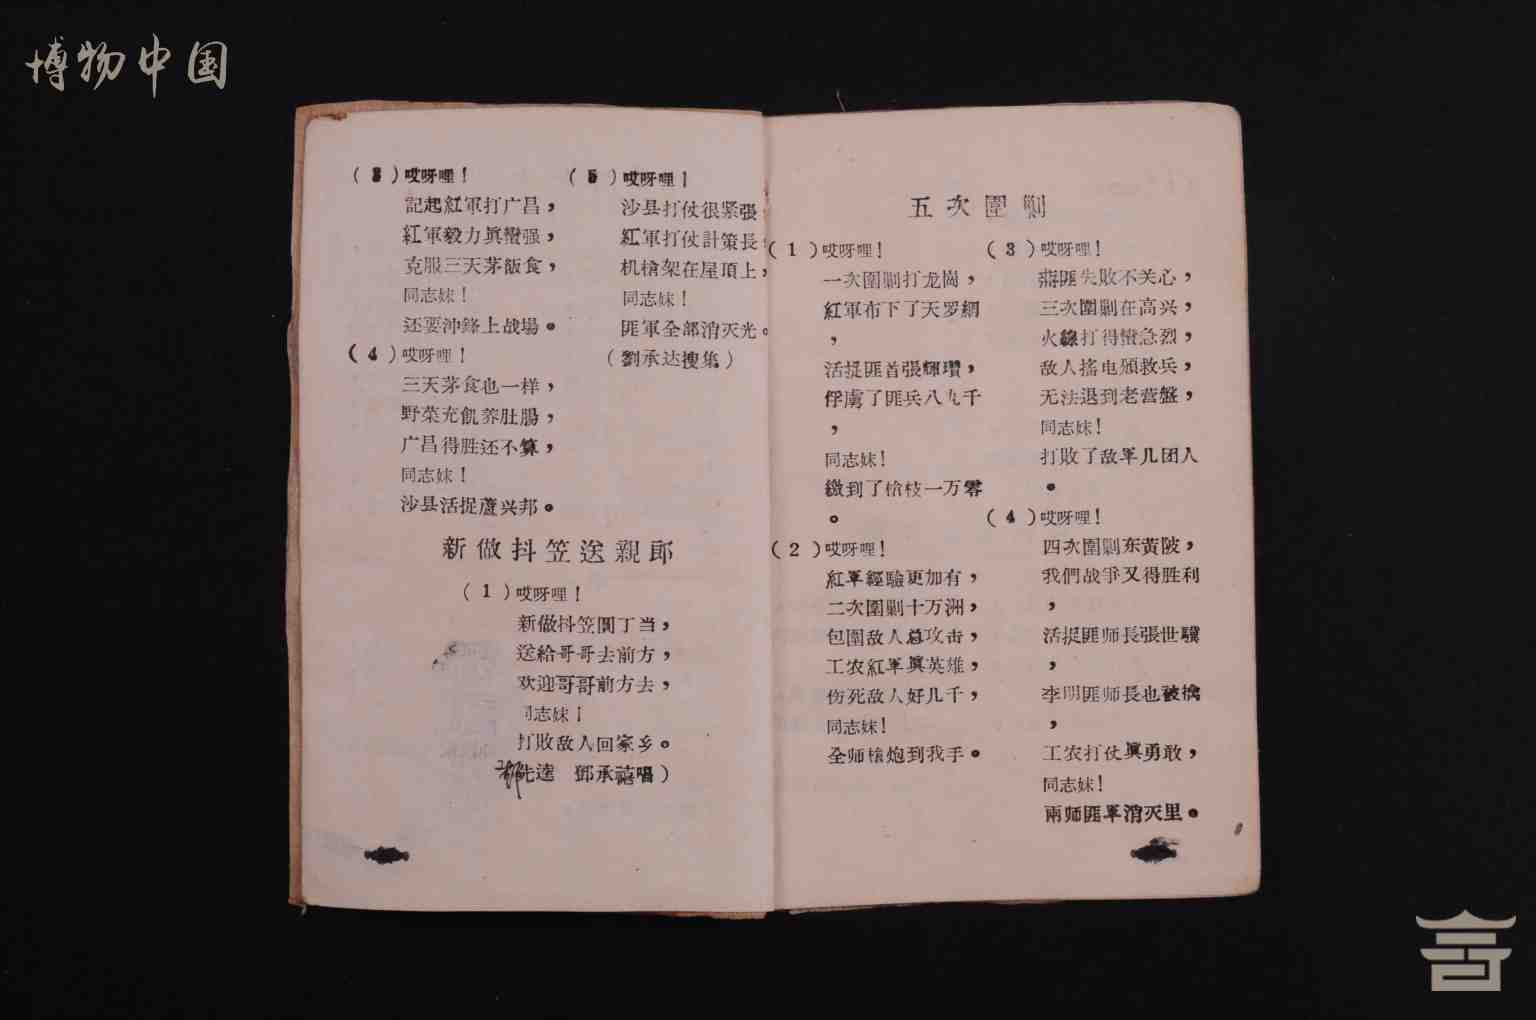 博物中国
(3)哎呀哩!
記起紅軍打广昌,
紅軍毅力眞蠻强,
克服三天茅飯食,
同志妹!
还要沖鋒上战場。
(4)哎呀哩!
三天茅食也一样,
野菜充飢养肚腸,
广昌得胜还不算,
同志妹!
沙县活捉蘆兴邦。
(5)哎呀哩!
沙县打仗很紧張
紅軍打仗計策長,
机槍架在屋頂上,
同志妹!
匪軍全部消灭光。
(劉承达搜集)
新做抖笠送親郎
(1)哎呀哩!
新做抖笠圓丁当,
送給哥哥去前方,
欢迎哥哥前方去,
同志妹!
打敗敌人回家乡。
光逵 鄧承禧唱)
五次圍剿
(1)哎呀哩!
一次圍剿打龙崗,
紅軍布下了天罗網
,
活捉匪首張輝瓚,
俘虜了匪兵八九千
,
同志妹!
繳到了槍枝一万零
。
(2)哎呀哩!
紅軍經驗更加有,
二次圍剿十万洲,
包圍敌人总攻击,
工农紅軍眞英雄,
伤死敌人好几千,
同志妹!
全师槍炮到我手。
(3)哎呀哩!
蔣匪失敗不关心,
三次圍剿在高兴,
火線打得蠻急烈,
敌人搖电頒救兵,
无法退到老营盤,
同志妹!
打敗了敌軍几团人
。
(4)哎呀哩!
四次圍剿东黄陂,
我們战爭又得胜利
,
活捉匪师長張世驥
,
李明匪师長也被擒
,
工农打仗眞勇敢,
同志妹!
兩师匪軍消灭里。